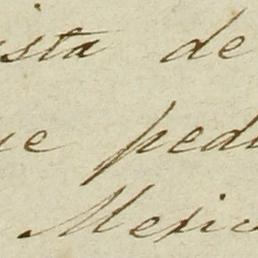 ista de
ue pedi
Mexic